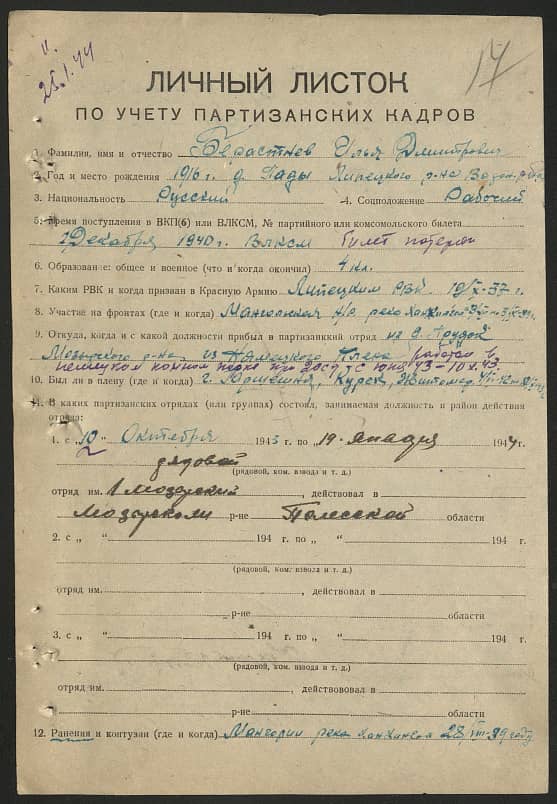 25.1.44
17
ЛИЧНЫЙ ЛИСТОК
ПО УЧЕТУ ПАРТИЗАНСКИХ КАДРОВ
1. Фамилия, имя и отчество Берастнев Илья Дмитрович
2. Год и место рождения 1916 г. д. Пады Липецкого р-на
3. Национальность Русский 4. Соцположение Рабочий
5. Время поступления в ВКП(б) или ВЛКСМ, № партийного или комсомольского билета
Декабря 1940 г. ВЛКСМ билет потерян
6. Образование: общее и военное (что и когда окончил) 4 кл.
7. Каким РВК и когда призван в Красную Армию Липецким РВК 19/IX-37 г.
8. Участие на фронтах (где и когда) река
9. Откуда, когда и с какой должности прибыл в партизанский отряд из д.
р-на из Плена работал в
немецком с 43-10.X.43.
10. Был ли в плену (где и когда) г. Курск, Житомер
11. В каких партизанских отрядах (или группах) состоял, занимаемая должность и район действия
отряда:
1. с „10" Октября 1943 г. по „19" января 1944 г.
рядовой
(рядовой, ком. взвода и т. д.)
отряд им. 1 Мозерский, действовал в
Мозерском р-не Полесской области
2. с „ " 194 г. по „ " 194 г.
(рядовой, ком. взвода и т. д.)
отряд им. , действовал в
р-не области
3. с „ " 194 г. по „ " 194 г.
(рядовой, ком. взвода и т. д.)
отряд им. , действовал в
р-не области
12. Ранения и контузии (где и когда) река 28/VIII-39 году